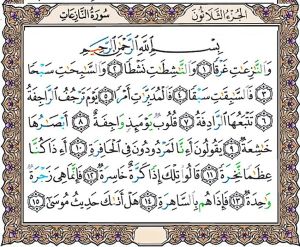 سُورَةُ النَّازِعَاتِ الجُزْءُ الثَّلَاثُونَ
بِسْمِ اللَّهِ الرَّحْمَٰنِ الرَّحِيمِ
وَالنَّٰزِعَٰتِ غَرْقًا ١ وَالنَّٰشِطَٰتِ نَشْطًا ٢ وَالسَّٰبِحَٰتِ سَبْحًا
٣ فَالسَّٰبِقَٰتِ سَبْقًا ٤ فَالْمُدَبِّرَٰتِ أَمْرًا ٥ يَوْمَ تَرْجُفُ الرَّاجِفَةُ
٦ تَتْبَعُهَا الرَّادِفَةُ ٧ قُلُوبٌ يَوْمَئِذٍ وَاجِفَةٌ ٨ أَبْصَٰرُهَا
خَٰشِعَةٌ ٩ يَقُولُونَ أَءِنَّا لَمَرْدُودُونَ فِي الْحَافِرَةِ ١٠ أَءِذَا كُنَّا
عِظَٰمًا نَّخِرَةً ١١ قَالُوا تِلْكَ إِذًا كَرَّةٌ خَاسِرَةٌ ١٢ فَإِنَّمَا هِيَ زَجْرَةٌ
وَٰحِدَةٌ ١٣ فَإِذَا هُم بِالسَّاهِرَةِ ١٤ هَلْ أَتَىٰكَ حَدِيثُ مُوسَىٰ ١٥